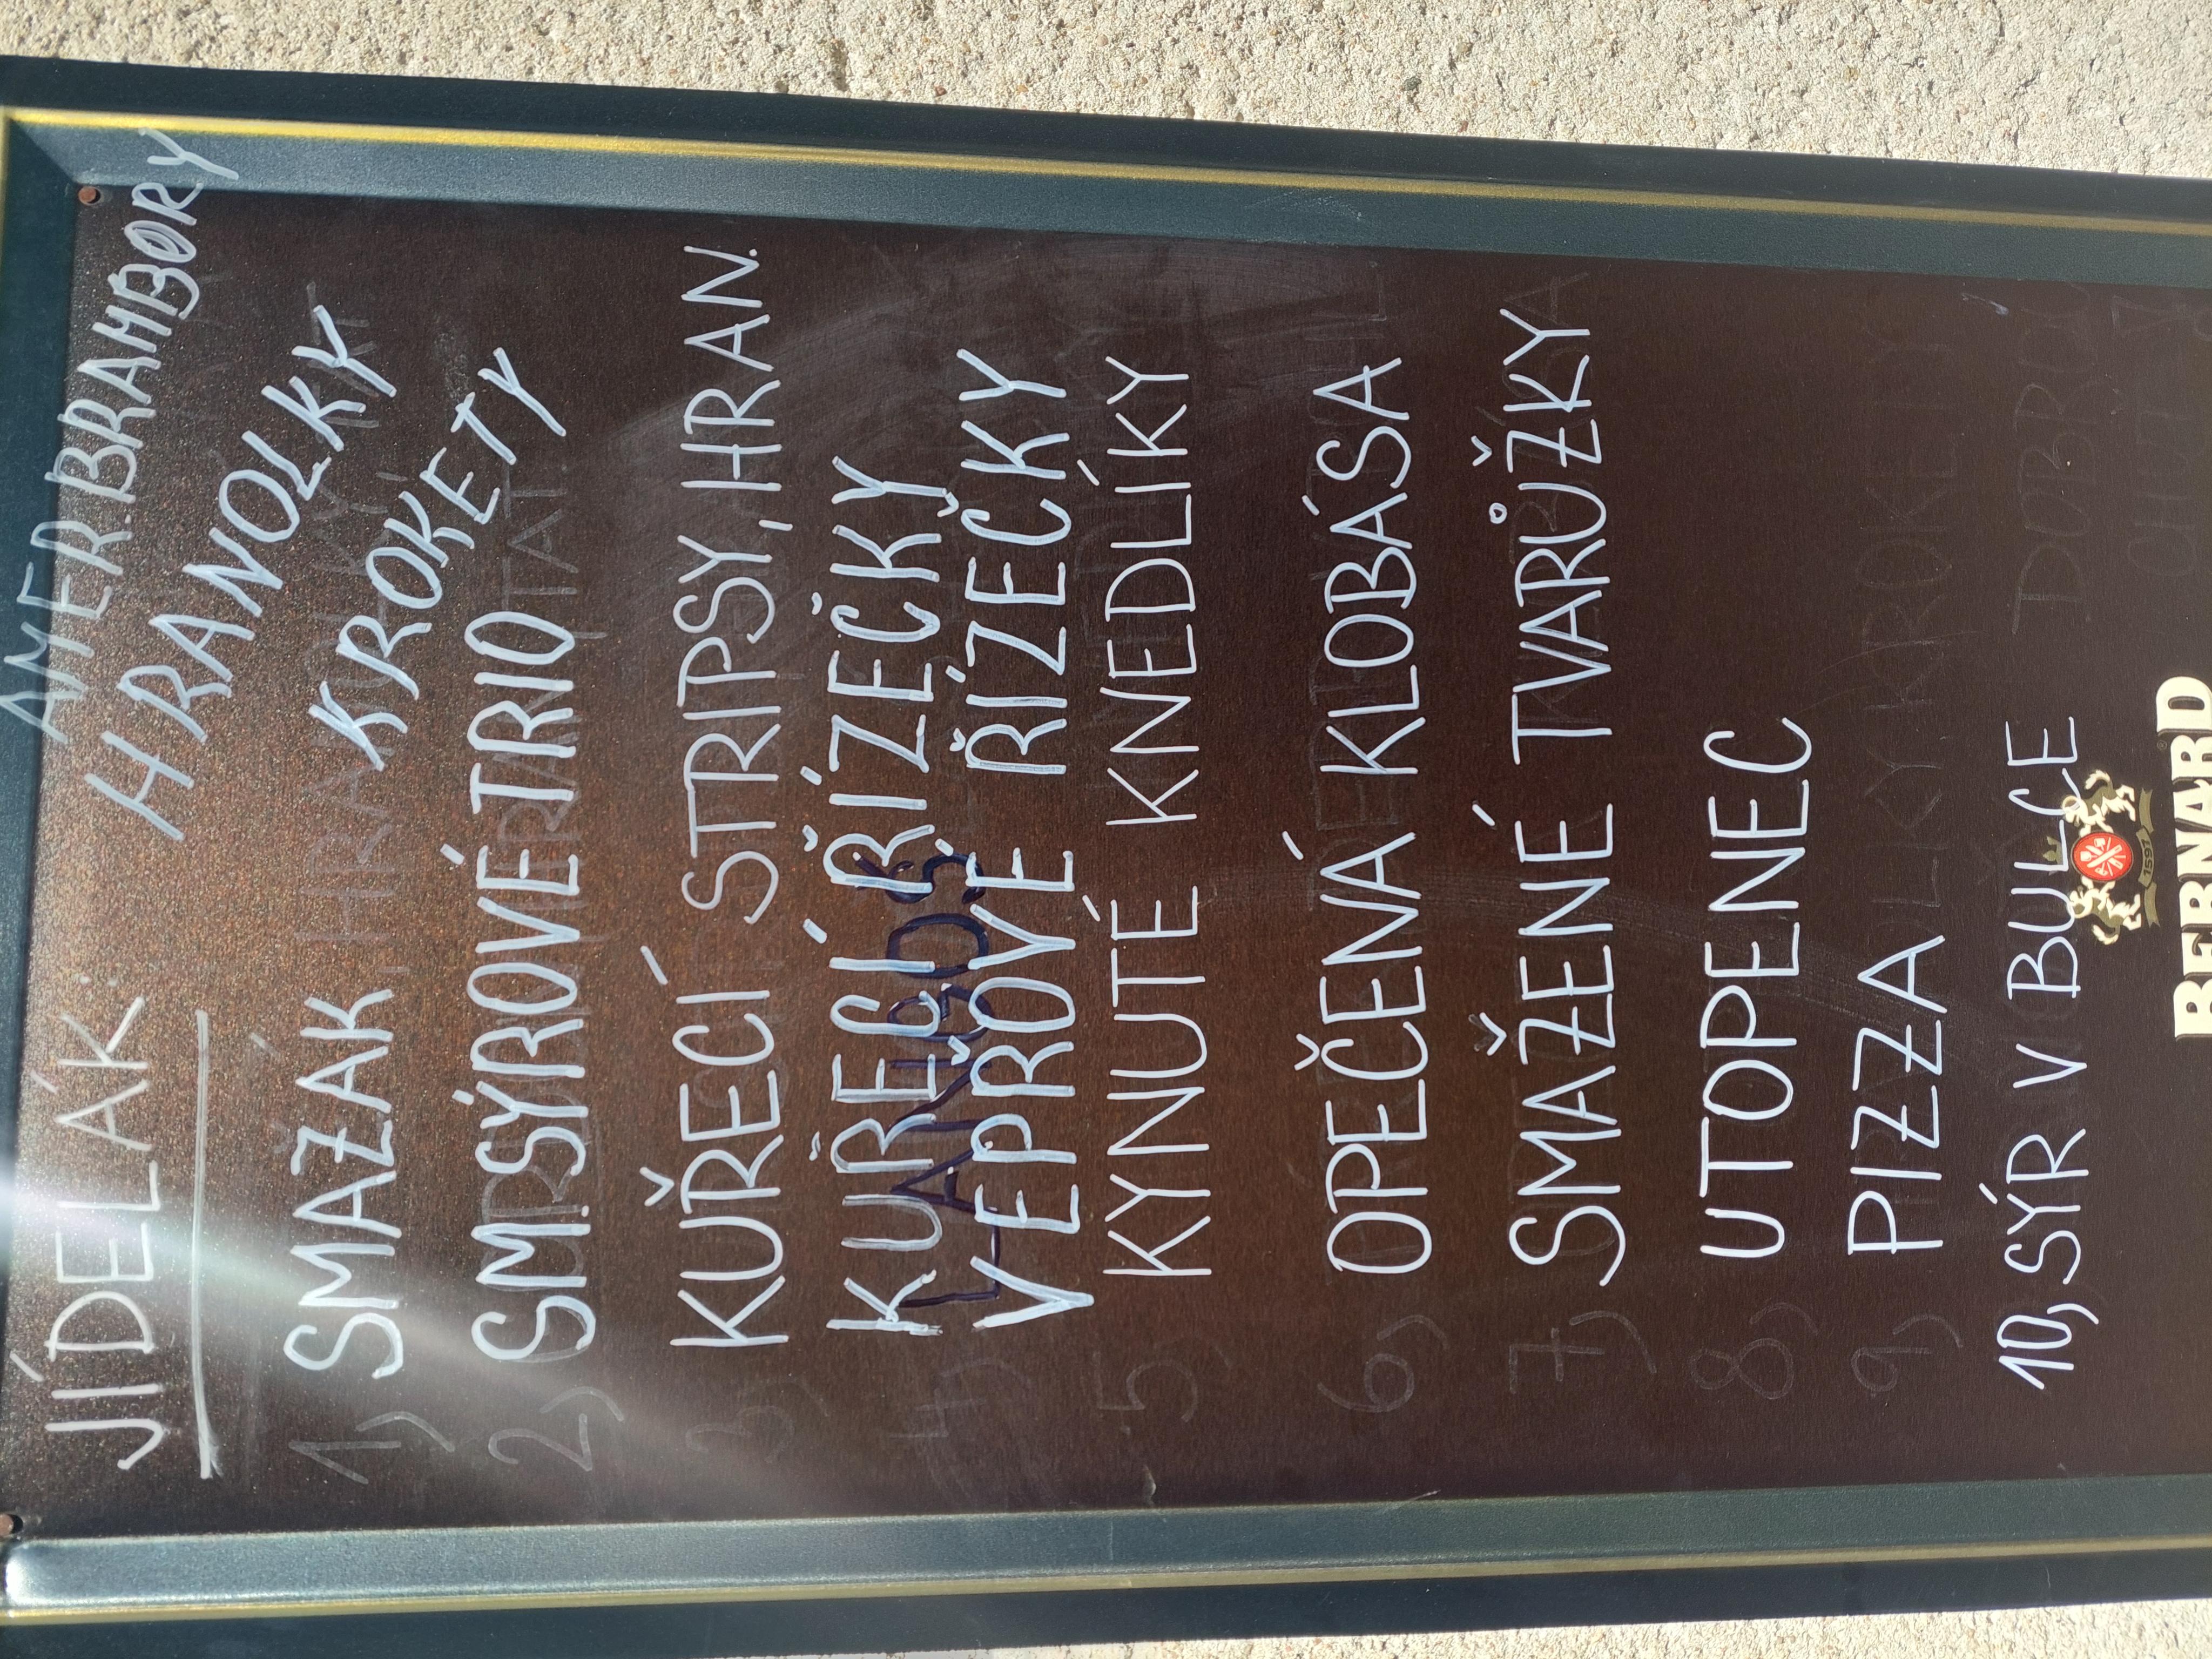 JÍDELÁK:
AMER. BRAMBORY
HRANOLKY
KROKETY
1) SMAŽÁK
2) SM. SÝROVÉ TRIO
3) KUŘECÍ STRIPSY, HRAN.
KUŘECÍ ŘÍZEČKY
4) LANGOŠ
VEPŘOVÉ ŘÍZEČKY
5) KYNUTÉ KNEDLÍKY
6) OPEČENÁ KLOBÁSA
7) SMAŽENÉ TVARŮŽKY
8) UTOPENEC
9) PIZZA
10, SÝR V BULCE
1597
BERNARD